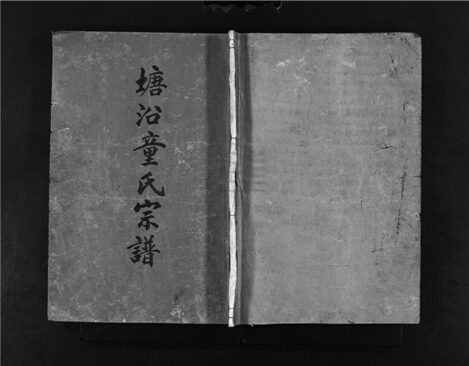 塘沿童氏宗譜